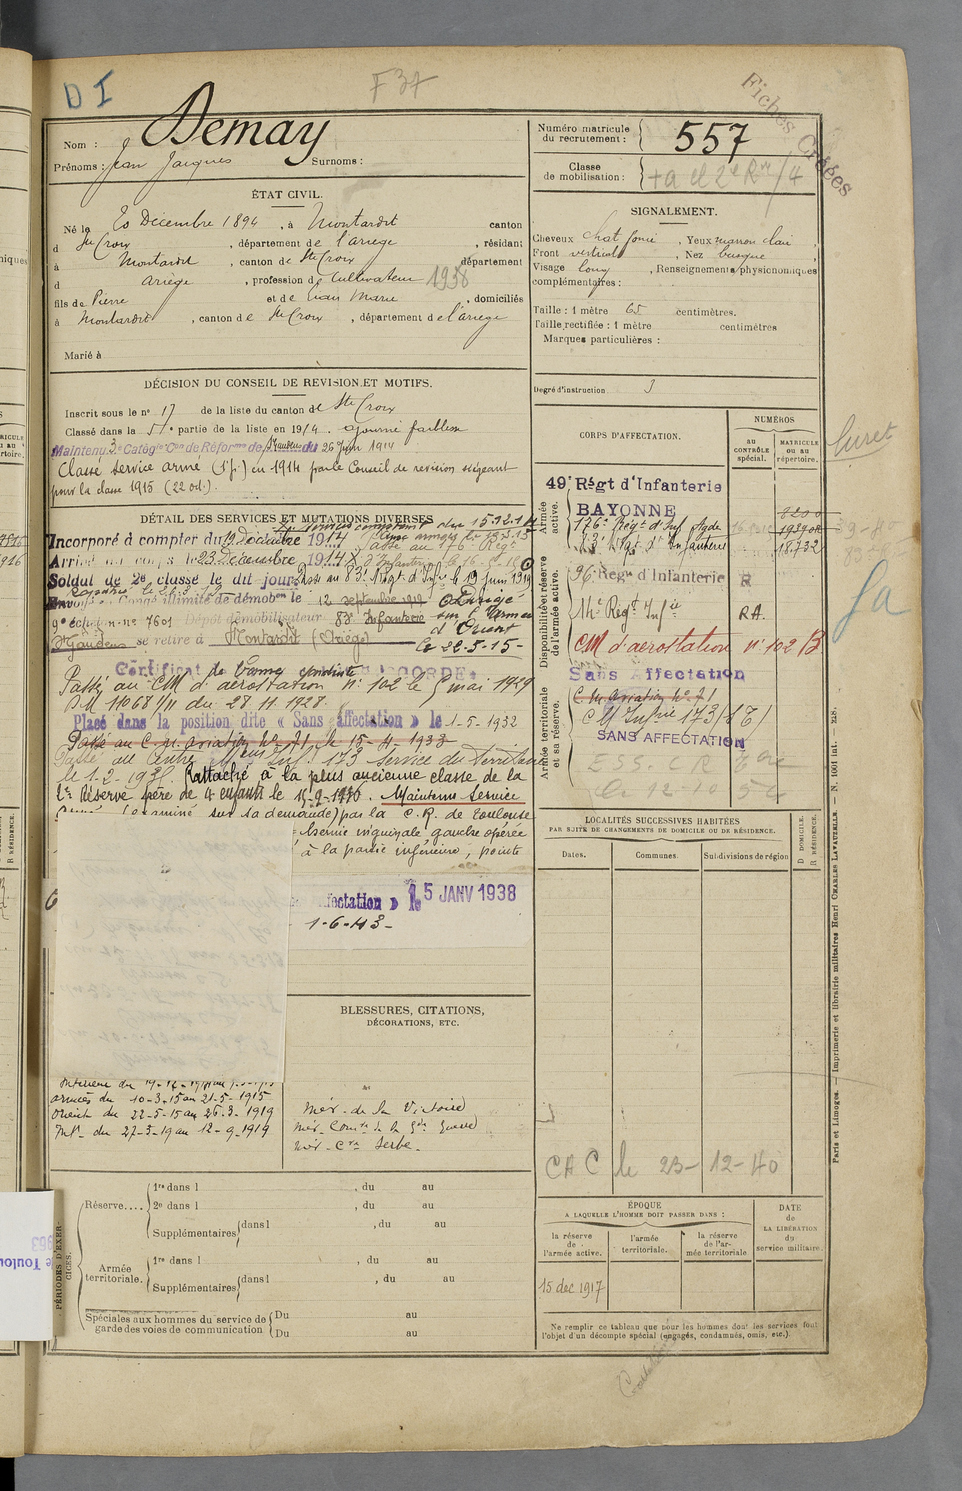 D I
F 37
Fiches Créées
Nom : Demay
Prénoms : Jean Jacques Surnoms :
Numéro matricule du recrutement : 557
Classe de mobilisation :
ÉTAT CIVIL.
Né le 20 Décembre 1894, à Montardit canton
d Ste Croix, département de l'ariège, résidant
à Montardit, canton de Ste Croix département
d Ariège, profession de Cultivateur 1938
fils de Pierre et de Marie, domiciliés
à Montardit, canton de Ste Croix, département de l'ariège
Marié à
SIGNALEMENT.
Cheveux chat foncé, Yeux marron clair,
Front vertical, Nez busqué,
Visage long, Renseignements physionomiques
complémentaires :
Taille : 1 mètre 65 centimètres.
Taille rectifiée : 1 mètre centimètres
Marques particulières :
Degré d'instruction 3
DÉCISION DU CONSEIL DE RÉVISION ET MOTIFS.
Inscrit sous le n° 17 de la liste du canton de Ste Croix
Classé dans la 5e partie de la liste en 1914. ajourné faiblesse
Maintenu 3e Catég Con de Réforme de St Gaudens du 26 Juin 1914
Classé service armé (1e p.) en 1914 par le Conseil de revision siégeant
pour la classe 1915 (22 oct.).
DÉTAIL DES SERVICES ET MUTATIONS DIVERSES
Incorporé à compter du 19 Décembre 1914
Arrivé au corps le 23 Décembre 1914
Soldat de 2e classe le dit jour. Passé au 83e Régt d'Infie le 19 juin 1919
Envoi en Congé illimité de démobon le 12 septembre 1919
9e échelon n° 7601 Dépôt démobilisateur 83e Infanterie
St Gaudens se retire à Montardit (Ariège)
Dirigé sur l'armée d'Orient le 22-5-15-
Certificat de bonne conduite ACCORDÉ
Passé au CM d'aérostation n° 102 le 1 mai 1929
DM 11068 1/11 du 28 11 1928
Placé dans la position dite « Sans affectation » le 1-5-1932
Passé au C. M. aviation n° 71 le 15-4-1933
Passé au Centre Mque Inf. 173 service du Territoire
le 1-2-193. Rattaché à la plus ancienne classe de la
2e Réserve père de 4 enfants le 15-9-1930. Maintenu Service
armé (examiné sur sa demande) par la C. R. de Toulouse
hernie inguinale gauche opérée
à la partie inférieure, pointe
affectation » le 15 JANV 1938
1-6-43-
CORPS D'AFFECTATION.
NUMÉROS
au CONTRÔLE spécial.
MATRICULE ou au répertoire.
Armée active.
Disponibilité et réserve de l'armée active.
Armée territoriale et sa réserve.
49e Régt d'Infanterie
BAYONNE
176e Régt d'Inf
83e Régt d'Infanterie 18.732
96e Régt d'Infanterie R
14e Régt Infie RA.
CM d'aérostation n° 102 B
Sans Affectation
C. M. Aviation n° 71
CM Infrie 173 (S T)
SANS AFFECTATION
ESS. C R
le 12-10 54
Muret
LOCALITÉS SUCCESSIVES HABITÉES
PAR SUITE DE CHANGEMENTS DE DOMICILE OU DE RÉSIDENCE.
Dates. Communes. Subdivisions de région
D DOMICILE. R RÉSIDENCE.
CAC le 23-12-40
BLESSURES, CITATIONS,
DÉCORATIONS, ETC.
Intérieur du
armées du 10-3-15 au 21-5-1915
orient du 22-5-15 au 26-3-1919
Intr du 27-3-19 au 12-9-1919
Mér. de la Victoire
Mér. Comtve de la Gde Guerre
Mér. Cve Serbe.
PÉRIODES D'EXERCICES.
Réserve....
1re dans l , du au
2e dans l , du au
Supplémentaires dans l , du au
Armée territoriale.
1re dans l , du au
Supplémentaires dans l , du au
Spéciales aux hommes du service de garde des voies de communication
Du au
Du au
ÉPOQUE
A LAQUELLE L'HOMME DOIT PASSER DANS :
la réserve de l'armée active.
l'armée territoriale.
la réserve de l'armée territoriale
DATE de LA LIBÉRATION du service militaire.
15 dec 1917
Ne remplir ce tableau que pour les hommes dont les services font
l'objet d'un décompte spécial (engagés, condamnés, omis, etc.).
Paris et Limoges. — Imprimerie et librairie militaires Henri CHARLES LAVAUZELLE. — N. 1601 int.